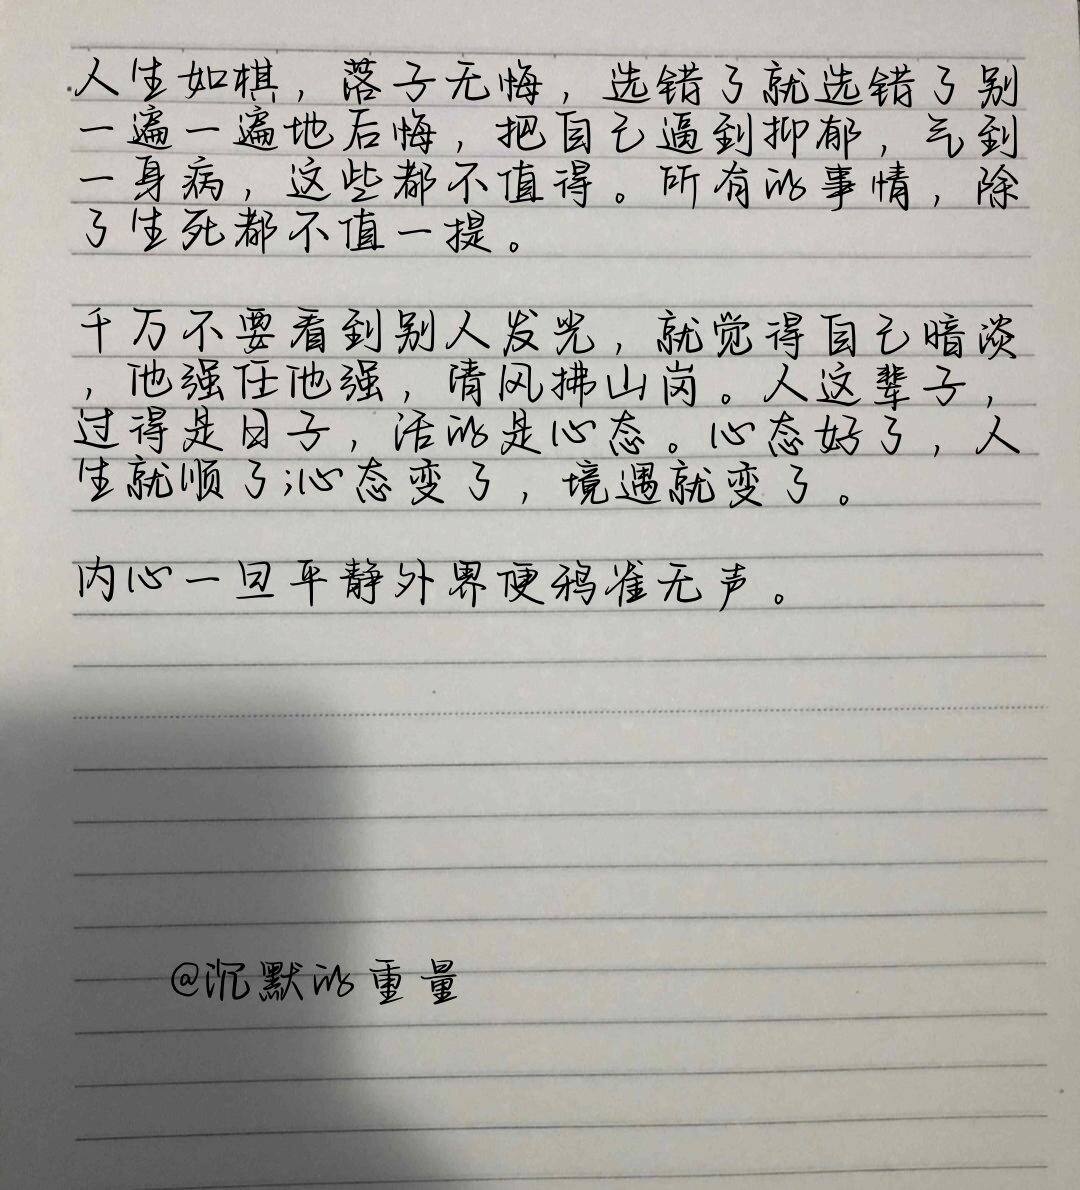 人生如棋，落子无悔，选错了就选错了别
一遍一遍地后悔，把自己逼到抑郁，气到
一身病，这些都不值得。所有的事情，除
了生死都不值一提。
千万不要看到别人发光，就觉得自己暗淡
，他强任他强，清风拂山岗。人这辈子，
过得是日子，活的是心态。心态好了，人
生就顺了;心态变了，境遇就变了。
内心一旦平静外界便鸦雀无声。
@沉默的重量